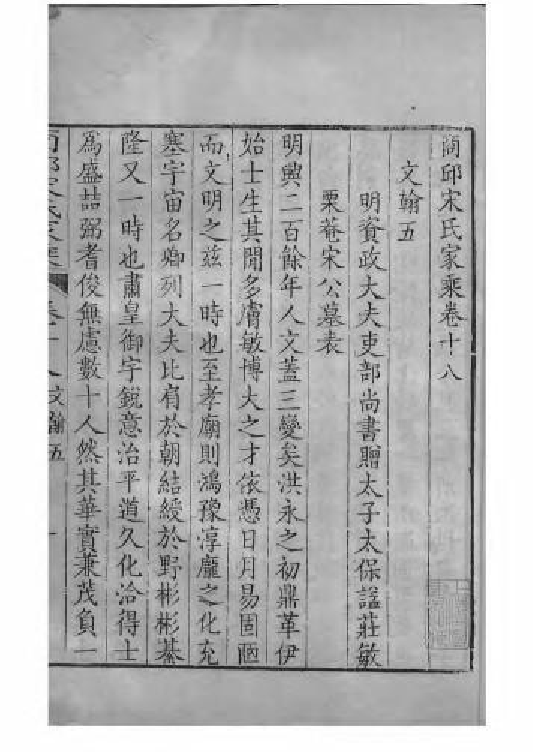 商邱宋氏家乘卷十八
文翰五
明資政大夫吏部尚書贈太子太保諡莊敏
栗菴宋公墓表
明興二百餘年人文蓋三變矣洪永之初鼎革伊
始士生其間多膚敏博大之才依憑日月易固陋
而文明之茲一時也至孝廟則鴻豫淳龐之化充
塞宇宙名卿列大夫比肩於朝結綬於野彬彬綦
隆又一時也肅皇御宇銳意治平道久化洽得士
爲盛喆弼耆俊無慮數十人然其華實兼茂負一
商邱宋氏家乘 卷十八 文翰五 一